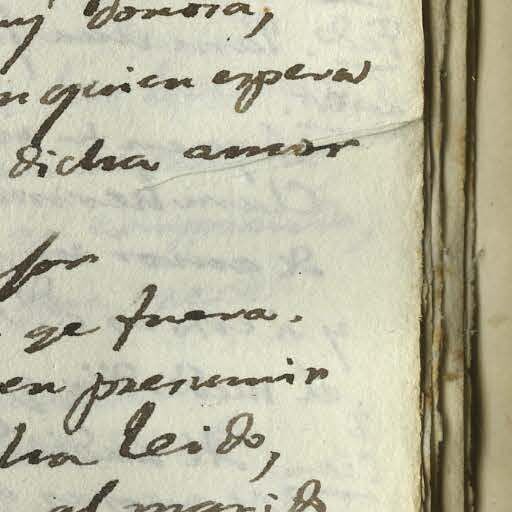 donora,
en quien espera
dicha amor
por
qe fuera.
en presumir
ha leido,
el marido